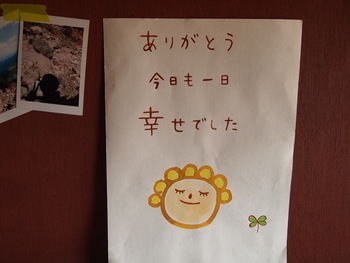 ありがとう
今日も一日
幸せでした